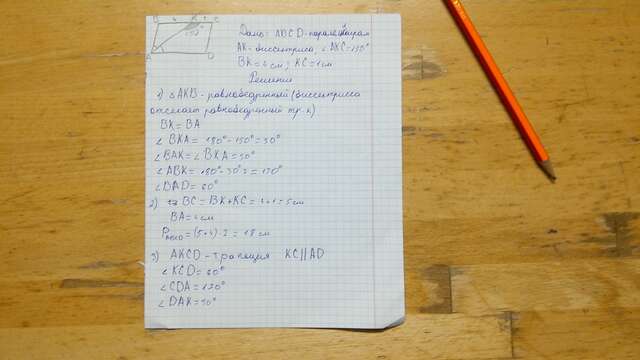 B 4 K 1 C
150°
A D
Дано: ABCD-паралелограм
AK-биссектриса, ∠AKC=150°
BK=4см, KC=1см
Решение
1) △AKB-равнобедренный (биссектриса
отсекает равнобедренный тр.к)
BK=BA
∠BKA=180°-150°=30°
∠BAK=∠BKA=30°
∠ABK=180°-30°·2=120°
∠BAD=60°
2) BC=BK+KC=4+1=5см
BA=4см
PABCD=(5+4)·2=18см
3) AKCD-трапеция KC||AD
∠KCD=60°
∠CDA=120°
∠DAK=30°